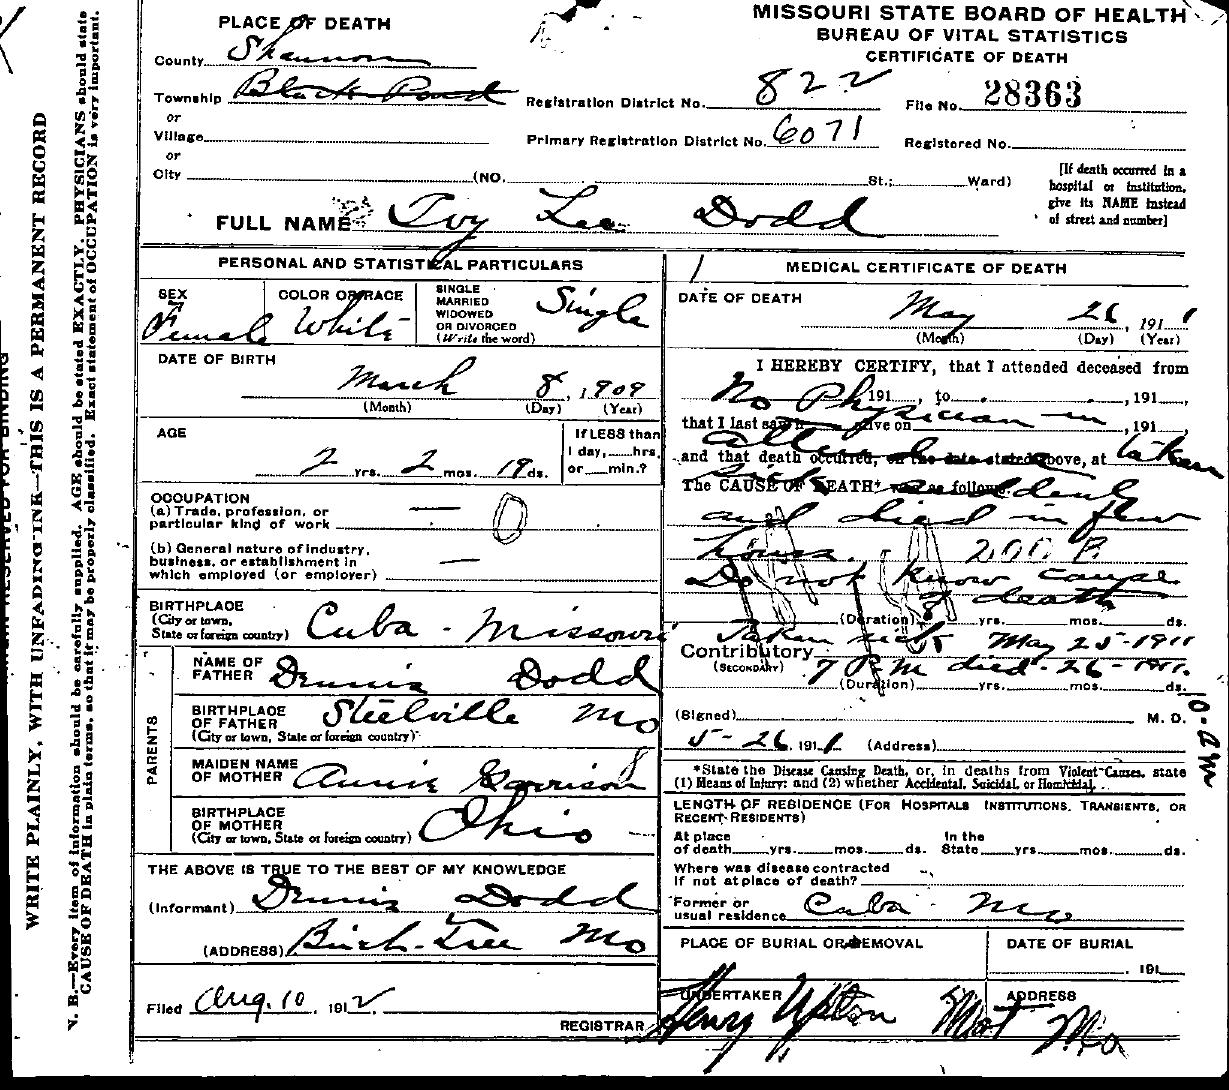 MISSOURI STATE BOARD OF HEALTH
BUREAU OF VITAL STATISTICS
CERTIFICATE OF DEATH
PLACE OF DEATH
County Shannon
Township
or
Village
or
City (NO. St.; Ward)
Registration District No. 822
File No. 28363
Primary Registration District No. 6071
Registered No.
[If death occurred in a
hospital or institution,
give its NAME instead
of street and number]
FULL NAME Ivy Lee Dodd
PERSONAL AND STATISTICAL PARTICULARS
SEX
Female
COLOR OR RACE
White
SINGLE
MARRIED
WIDOWED
OR DIVORCED
(Write the word)
Single
DATE OF BIRTH
March 8, 1909
(Month) (Day) (Year)
AGE
2 yrs. 2 mos. 19 ds.
If LESS than
1 day, hrs.
or min.?
OCCUPATION
(a) Trade, profession, or
particular kind of work —
(b) General nature of industry,
business, or establishment in
which employed (or employer) —
BIRTHPLACE
(City or town,
State or foreign country) Cuba - Missouri
PARENTS
NAME OF
FATHER Dennis Dodd
BIRTHPLACE
OF FATHER
(City or town, State or foreign country) Steelville Mo
MAIDEN NAME
OF MOTHER Annie Garrison
BIRTHPLACE
OF MOTHER
(City or town, State or foreign country) Ohio
THE ABOVE IS TRUE TO THE BEST OF MY KNOWLEDGE
(Informant) Dennis Dodd
(ADDRESS) Birch-Tree Mo
Filed Aug. 10, 1912
REGISTRAR
MEDICAL CERTIFICATE OF DEATH
DATE OF DEATH
May 26, 1911
(Month) (Day) (Year)
I HEREBY CERTIFY, that I attended deceased from
No Physician in
191 , to , 191 ,
that I last saw alive on , 191 ,
and that death occurred, on the date stated above, at taken
The CAUSE OF DEATH* was as follows:
and died in few
hours. 200 B
Do not know cause
of death
(Duration) yrs. mos. ds.
Taken sick May 25-1911
Contributory
(SECONDARY) 7 P.M died-26-1911.
10-am
(Duration) yrs. mos. ds.
(Signed) M. D.
5-26, 1911 (Address)
*State the Disease Causing Death, or, in deaths from Violent Causes, state
(1) Means of Injury; and (2) whether Accidental, Suicidal, or Homicidal.
LENGTH OF RESIDENCE (FOR HOSPITALS INSTITUTIONS, TRANSIENTS, OR
RECENT RESIDENTS)
At place
of death yrs. mos. ds.
In the
State yrs. mos. ds.
Where was disease contracted
If not at place of death?
Former or
usual residence Cuba - Mo
PLACE OF BURIAL OR REMOVAL
DATE OF BURIAL
, 191
UNDERTAKER
Henry
ADDRESS
Mo
WRITE PLAINLY, WITH UNFADING INK—THIS IS A PERMANENT RECORD
N. B.—Every item of information should be carefully supplied. AGE should be stated EXACTLY. PHYSICIANS should state
CAUSE OF DEATH in plain terms, so that it may be properly classified. Exact statement of OCCUPATION is very important.